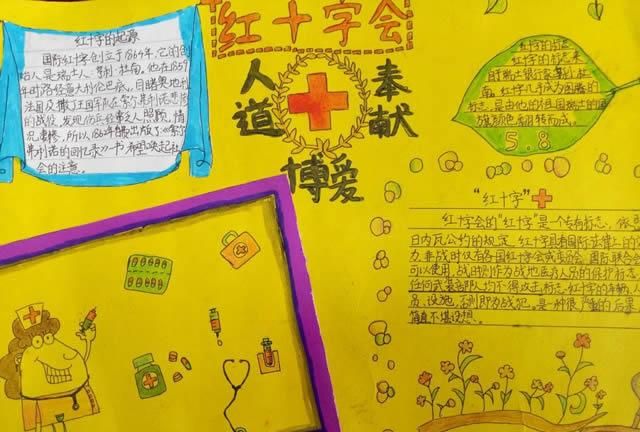 红十字会
人道
奉献
博爱
红十字的起源
国际红十字创立于1864年,它的创
始人是瑞士人:亨利·杜南。他在1859
年时路经意大利伦巴底,目睹奥地利
法国及撒丁王国军队在索尔弗利诺悲惨
的战役,发现伤兵经乏人照顾,情
况凄惨,所以,1862年他出版了《索尔
弗利诺的回忆录》一书,希望唤起社
会的注意。
红十字的标志
红十字的标志来
自瑞士银行家亨利·杜
南,红十字几乎成为国旗的
标志,是由他的祖国瑞士的国
旗颜色翻转而成。
5.8
“红十字”
红十字会的“红十字”是一个专有标志,依
日内瓦公约的规定,红十字具有国际支撑上的
力,非战时仅各国红十字会或委员会、国际联合会
可以使用,战时则作为战地医疗人员的保护标志
任何武装部队均不得攻击标志红十字的车辆、人
员、设施,否则即为战犯。是一种很严重的后果
简直不堪设想。